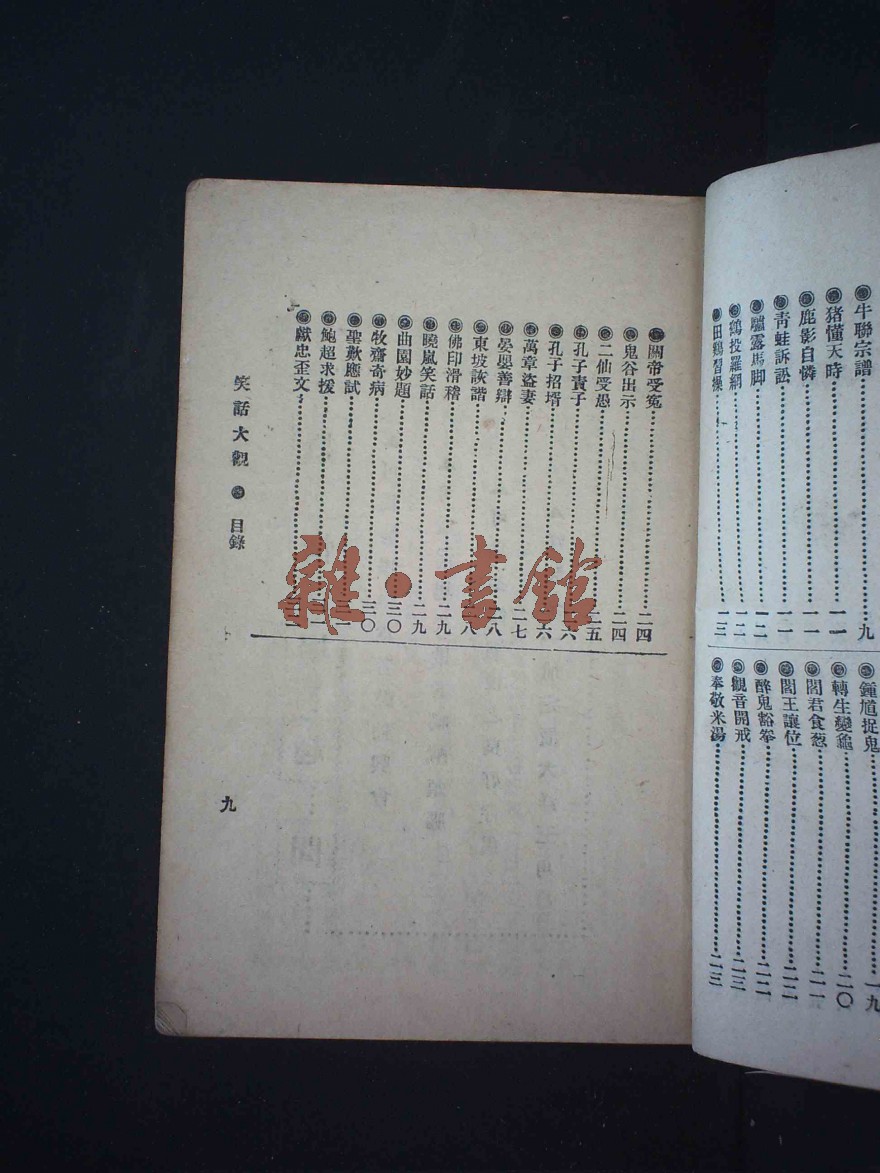 牛聯宗譜……九
猪懂天時……一一
鹿影自憐……一一
靑蛙訴訟……一一
驢露馬脚……一二
鷄投羅網……一二
田鷄習操……一三
鍾馗捉鬼……一九
轉生變龜……二〇
閻君食葱……二一
閻王讓位……二二
醉鬼豁拳……二二
觀音開戒……二三
奉敬米湯……二三
關帝受冤……二四
鬼谷出示……二四
二仙受愚……二五
孔子責子……二六
孔子招壻……二六
萬章盜妻……二七
晏嬰善辯……二八
東坡詼諧……二八
佛印滑稽……二九
曉嵐笑話……二九
曲園妙題……三〇
牧齋奇病……三〇
聖歎應試
鮑超求援
獻忠歪文
笑話大觀 目錄
九
雜·書館